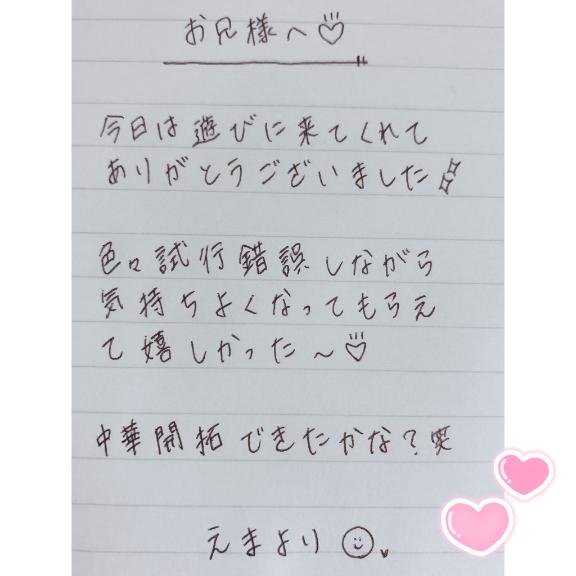 お兄様へ♡
今日は遊びに来てくれて
ありがとうございました
色々試行錯誤しながら
気持ちよくなってもらえ
て嬉しかった〜♡
中華開拓できたかな?笑
えまより